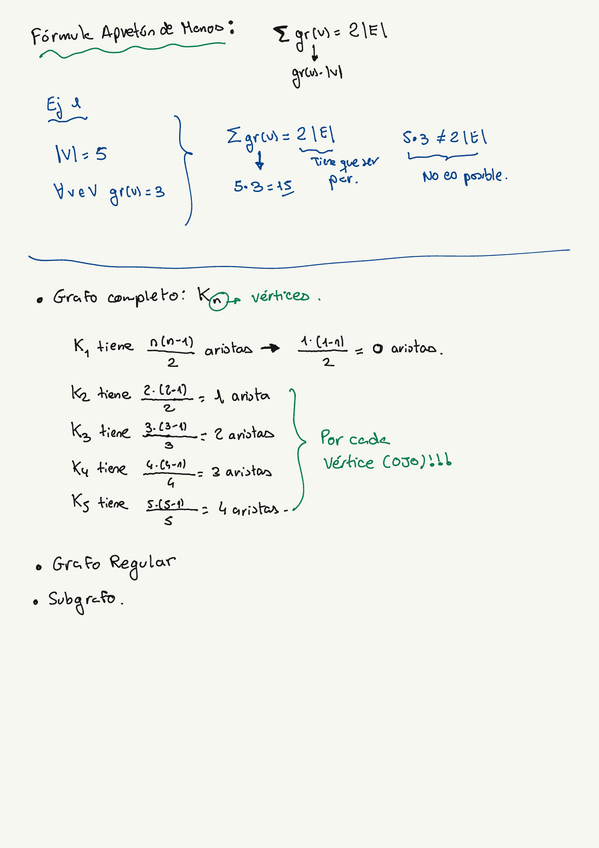 Fórmula Apretón de Manos: Σ gr(v) = 2|E|
gr(v)·|V|
Ej 1
|V| = 5
∀v∈V gr(v) = 3
Σ gr(v) = 2|E|
Tiene que ser
par.
5·3 = 15
5·3 ≠ 2|E|
No es posible.
• Grafo completo: Kn → vértices.
K1 tiene n(n-1)/2 aristas → 1·(1-1)/2 = 0 aristas.
K2 tiene 2·(2-1)/2 = 1 arista
K3 tiene 3·(3-1)/3 = 2 aristas
K4 tiene 4·(4-1)/4 = 3 aristas
K5 tiene 5·(5-1)/5 = 4 aristas.
Por cada
vértice (OJO)!!!
• Grafo Regular
• Subgrafo.